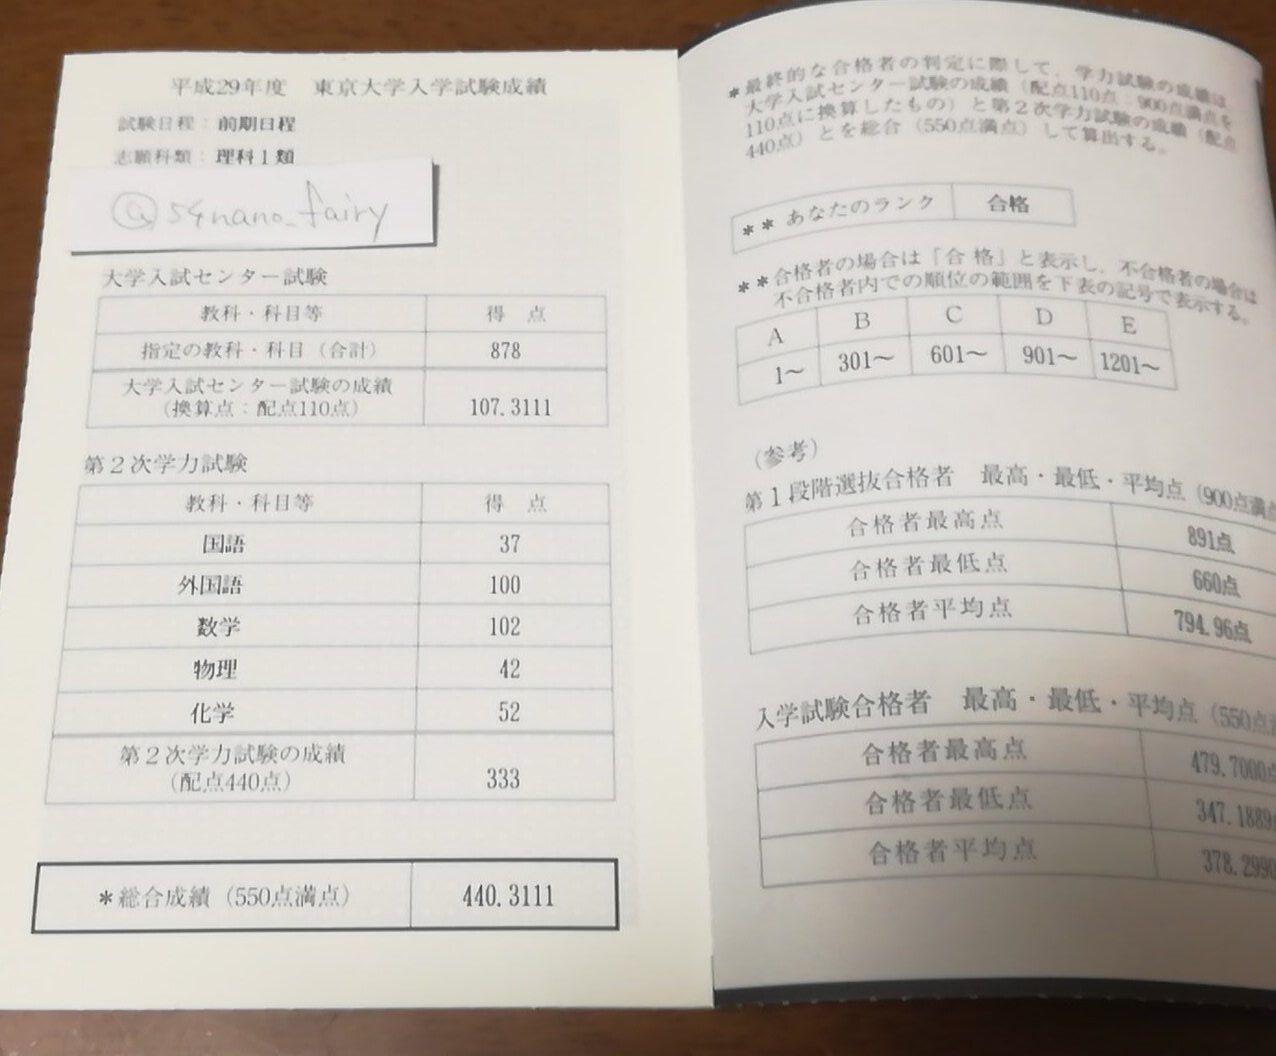 平成29年度　東京大学入学試験成績
試験日程：前期日程
志願科類：理科1類
@s4nano_fairy
大学入試センター試験
教科・科目等　得　点
指定の教科・科目（合計）　878
大学入試センター試験の成績
（換算点：配点110点）　107.3111
第2次学力試験
教科・科目等　得　点
国語　37
外国語　100
数学　102
物理　42
化学　52
第2次学力試験の成績
（配点440点）　333
＊総合成績（550点満点）　440.3111
＊最終的な合格者の判定に際して，学力試験の成績は，
大学入試センター試験の成績（配点110点：900点満点を
110点に換算したもの）と第2次学力試験の成績（配点
440点）とを総合（550点満点）して算出する。
＊＊あなたのランク　合格
＊＊合格者の場合は「合格」と表示し，不合格者の場合は
不合格者内での順位の範囲を下表の記号で表示する。
A　B　C　D　E
1～　301～　601～　901～　1201～
（参考）
第1段階選抜合格者　最高・最低・平均点（900点満点
合格者最高点　891点
合格者最低点　660点
合格者平均点　794.96点
入学試験合格者　最高・最低・平均点（550点
合格者最高点　479.7000点
合格者最低点　347.1889
合格者平均点　378.2990